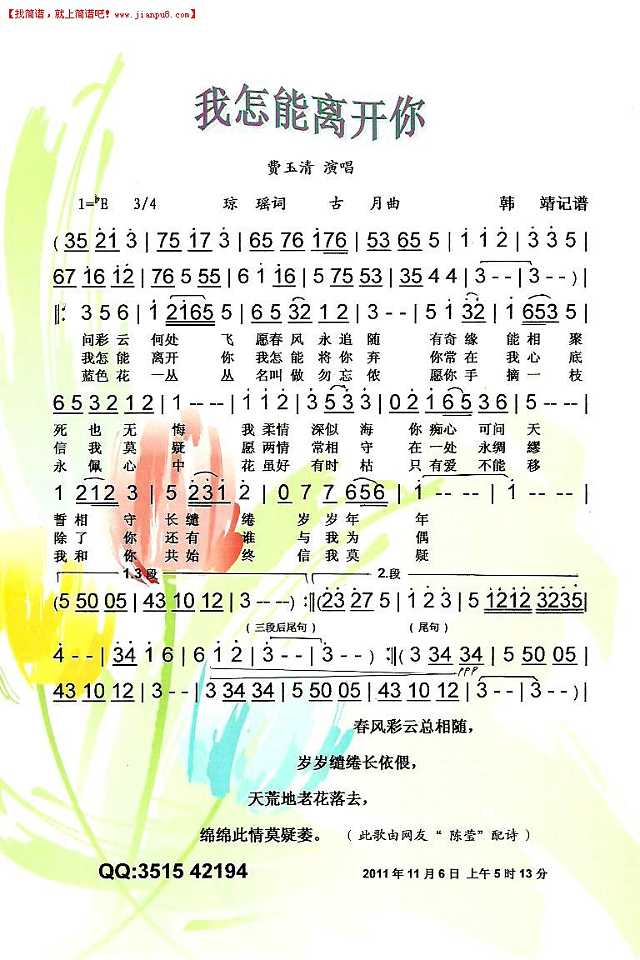 【找简谱，就上简谱吧！www.jianpu8.com】
我怎能离开你
费玉清 演唱
1=♭E 3/4 琼 瑶词 古 月曲 韩 靖记谱
(35 21 3 | 75 17 3 | 65 76 176 | 53 65 5 | 1 1 2 | 3 3 5 |
67 16 12 | 76 5 55 | 6 1 1 | 7 57 53 | 35 44 | 3 - - | 3 - - ) |
|: 3 5 6 | 1 2165 5 | 6 65 32 1 2 | 3 - - | 5 1 32 | 1 653 5 |
问彩云 何处 飞 愿春风永追随 有奇缘 能相聚
我怎能 离开 你 我怎能将你弃 你常在 我心底
蓝色花 一丛 丛 名叫做勿忘侬 愿你手 摘一枝
6 53 21 2 | 1 - - | 1 1 2 | 3 53 3 | 0 2 1 65 | 5 1 2 |
死也无悔 我柔情深似海 你痴心可问天
信我莫疑 愿两情常相守 在一处永绸缪
永佩心中 花虽好有时枯 只有爱不能移
1 212 3 | 5 231 2 | 0 7 7 656 | 1 - - | 1 - - |
誓相守长缱绻 岁岁年年
除了你还有谁 与我为偶
我和你共始终 信我莫疑
1.3段 2.段
(5 50 05 | 43 10 12 | 3 - - | 3 - - ) :|| (23 27 5 | 1 2 3 | 5 1212 3235 |
(三段后尾句) (尾句)
4 - - | 34 1 6 | 6 1 2 | 3 - - | 3 - - ) :|| (3 34 34 | 5 50 05 |
ppp
43 10 12 | 3 - - | 3 34 34 | 5 50 05 | 43 10 12 | 3 - - | 3 - - ) |
春风彩云总相随，
岁岁缱绻长依偎，
天荒地老花落去，
绵绵此情莫疑萎。 （此歌由网友“陈莹”配诗）
QQ:3515 42194 2011年11月6日 上午5时13分